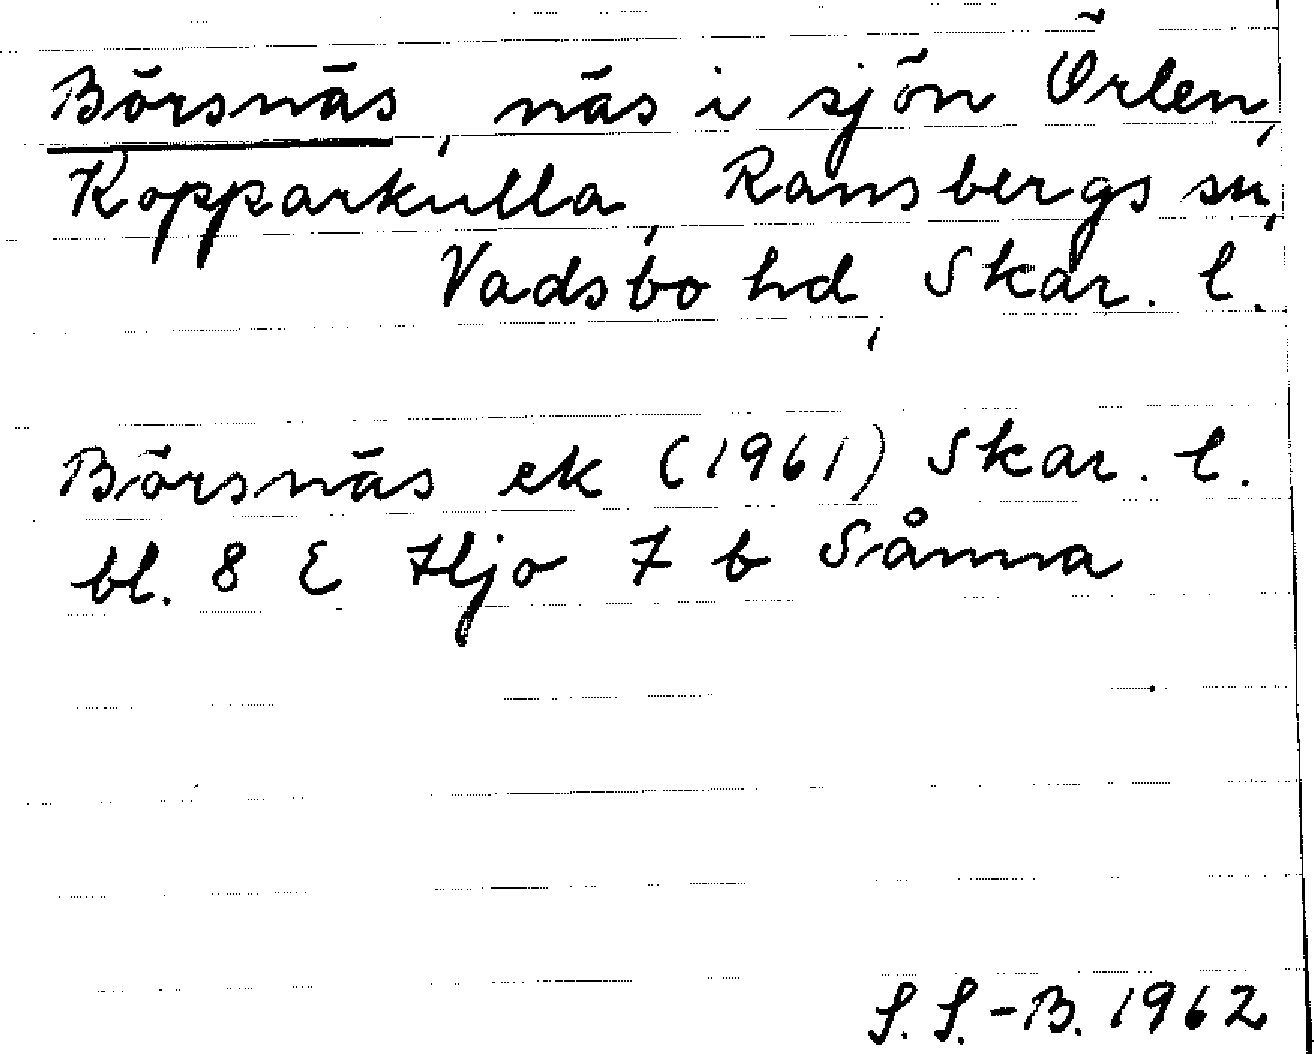 Börsnäs, näs i sjön Örlen,
Kopparkulla, Ransbergs sn,
Vadsbo hd, Skar. l.
Börsnäs ek (1961) Skar. l.
bl. 8 E Hjo 7 b Sånna
S. S.-B. 1962